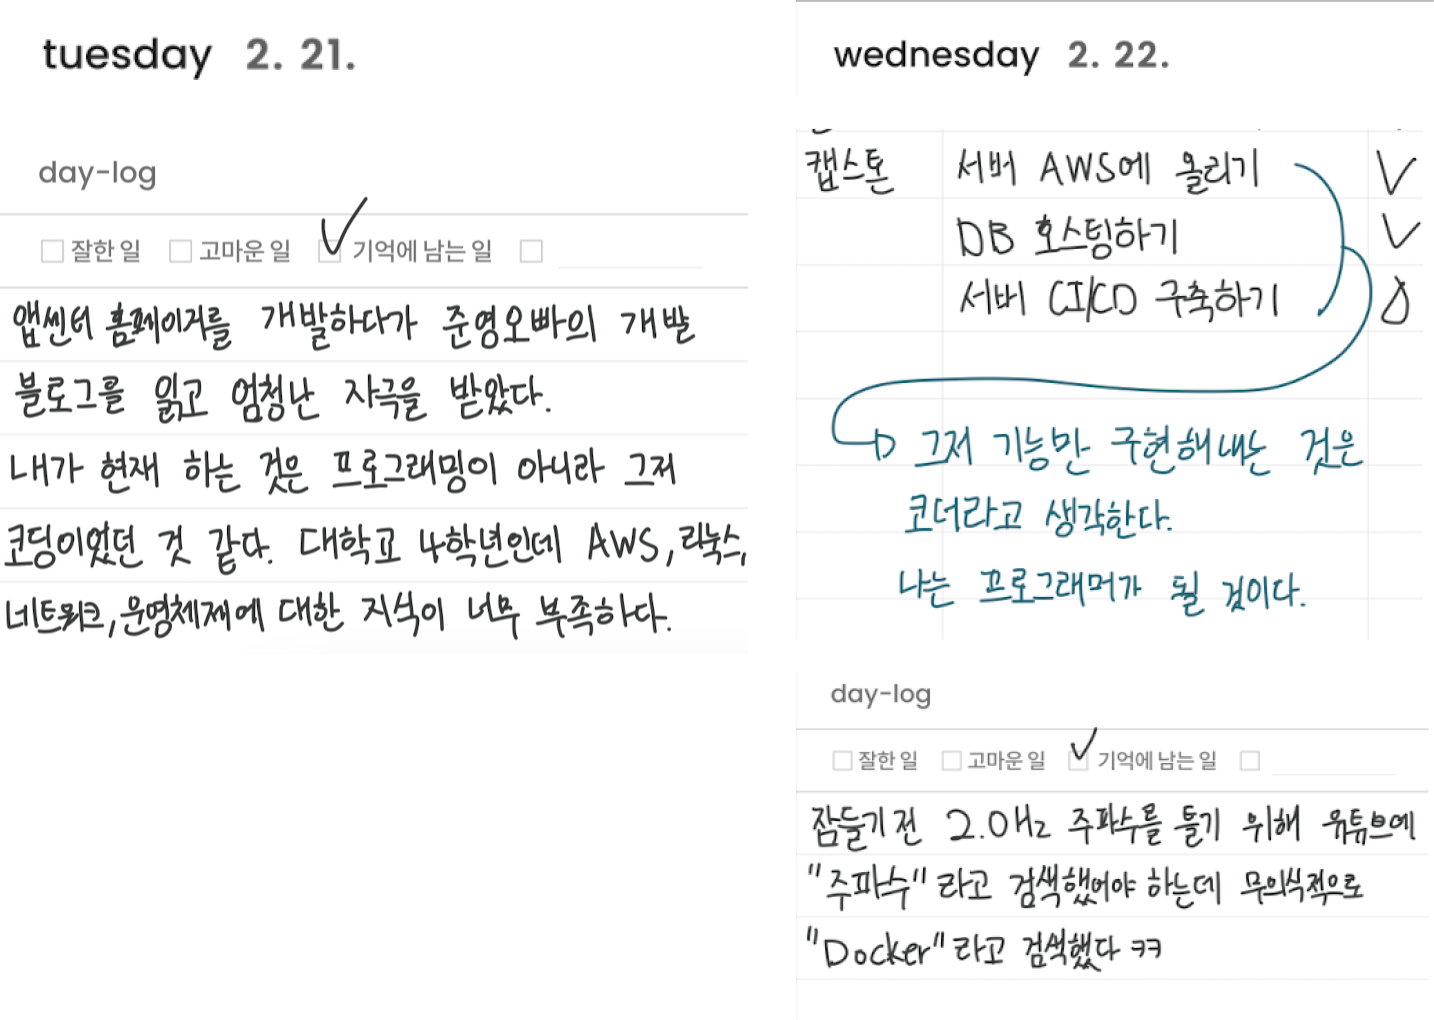 tuesday 2. 21.
day-log
잘한 일 고마운 일 기억에 남는 일
앱센터 홈페이지를 개발하다가 준영오빠의 개발
블로그를 읽고 엄청난 자극을 받았다.
내가 현재 하는 것은 프로그래밍이 아니라 그저
코딩이었던 것 같다. 대학교 4학년인데 AWS, 리눅스,
네트워크, 운영체제에 대한 지식이 너무 부족하다.
wednesday 2. 22.
캡스톤 서버 AWS에 올리기
DB 호스팅하기
서버 CI/CD 구축하기
그저 기능만 구현해내는 것은
코더라고 생각한다.
나는 프로그래머가 될 것이다.
day-log
잘한 일 고마운 일 기억에 남는 일
잠들기 전 2.0Hz 주파수를 틀기 위해 유튜브에
"주파수"라고 검색했어야 하는데 무의식적으로
"Docker"라고 검색했다 ㅋㅋ